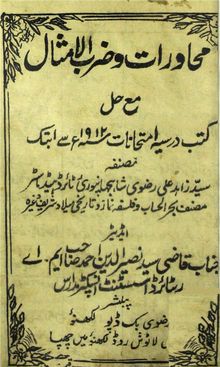 محاورات و ضرب الامثال
مع حل
کتب درسیہ و امتحانات ۱۹۱۲ء سے ابتک
مصنفہ
سید زاہد علی رضوی شاہجہانپوری ریٹائرڈ ہیڈ ماسٹر
مصنف بحر الحساب و فلسفہ نماز و تاریخی میلاد شریف وغیرہ
ایڈیٹر
جناب قاضی سید نصیر الدین احمد صاحب ایم۔ اے
ریٹائرڈ اسسٹنٹ انسپکٹر مدارس
پبلشر
رضوی بک ڈپو لکھنؤ
لاٹوش روڈ لکھنؤ میں چھپا